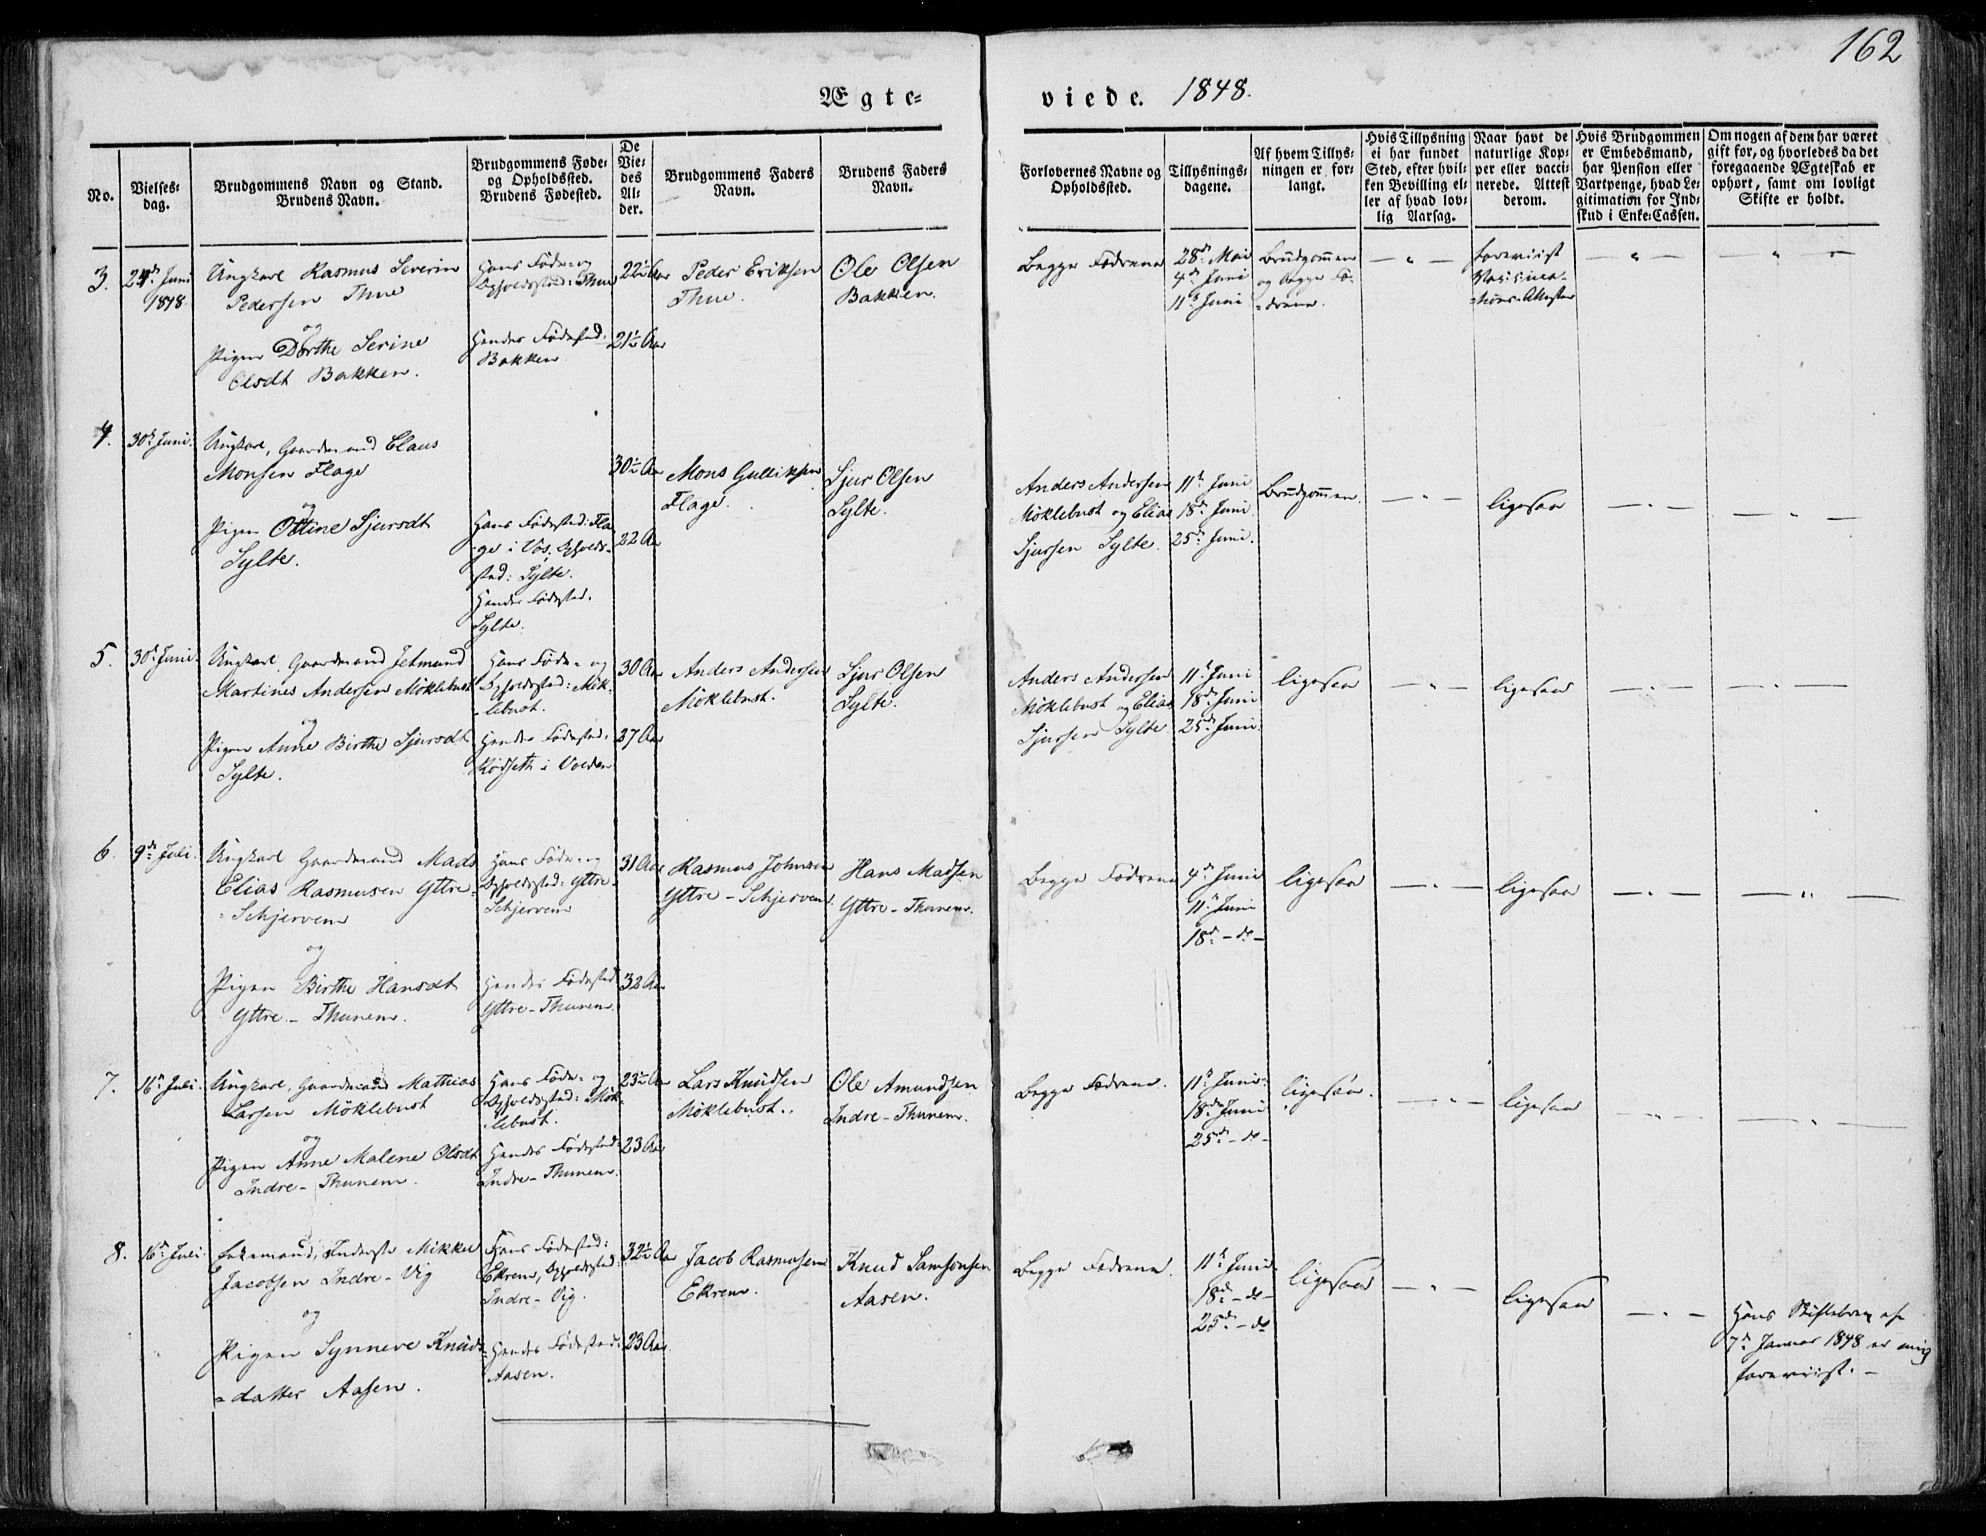 162
Ægte-
viede. 1848.
No.
Vielses-
dag.
Brudgommens Navn og Stand.
Brudens Navn.
Brudgommens Føde-
og Opholdssted.
Brudens Fødested.
De
Vie-
des
Al-
der.
Brudgommens Faders
Navn.
Brudens Faders
Navn.
Forlovernes Navne og
Opholdssted.
Tillysnings-
dagene.
Af hvem Tillys-
ningen er for-
langt.
Hvis Tillysning
ei har fundet
Sted, efter hvil-
ken Bevilling el-
ler af hvad lov-
lig Aarsag.
Naar havt de
naturlige Kop-
per eller vacci-
nerede. Attest
derom.
Hvis Brudgommen
er Embedsmand,
har Pension eller
Vartpenge, hvad Le-
gitimation for Ind-
skud i Enke-Cassen.
Om nogen af dem har været
gift før, og hvorledes da det
foregaaende Ægteskab er
ophørt, samt om lovligt
Skifte er holdt.
3.
24de Juni
1848.
Ungkarl Rasmus Severin
Pedersen Thue
og
Pigen Dorthe Serine
Olsdt Bakken.
Hans Føde- og
Opholdssted: Thue
Hendes Fødested:
Bakken
22½ Aar
21½ Aar
Peder Eriksen
Thue.
Ole Olsen
Bakken.
Begge Fædrene
28de Mai
4de Juni
11te Juni
Brudgommen
og begge Fæ-
-drene.
foreviist
Vaccina-
-tions-Attester
4.
30te Juni.
Ungkarl, Gaardmand Claus
Monsen Flage
og
Pigen Ottine Sjursdt
Sylte.
Hans Fødested: Fla-
ge i Vos, Opholds-
sted: Sylte.
Hendes Fødested.
Sylte.
30½ Aar
22 Aar
Mons Gulliksen
Flage.
Sjur Olsen
Sylte.
Anders Andersen
Møklebust og Elias
Sjursen Sylte.
11te Juni
18de Juni
25de Juni.
Brudgommen.
ligesaa
5.
30te Juni.
Ungkarl, Gaardmand Jetmund
Martines Andersen Møklebust
og
Pigen Anne Birthe Sjursdt
Sylte.
Hans Føde- og
Opholdssted: Møk-
-lebust.
Hendes Fødested:
Rødseth i Volden
30 Aar
37 Aar
Anders Andersen
Møklebust.
Sjur Olsen
Sylte.
Anders Andersen
Møklebust og Elias
Sjursen Sylte
11te Juni
18de Juni
25de Juni.
ligesaa
ligesaa
6.
9de Juli.
Ungkarl Gaardmand Mads
Elias Rasmusen Yttre-
-Schjervem
og
Pigen Birthe Hansdt
Yttre-Thunem.
Hans Føde- og
Opholdssted: Yttre-
Schjervem
Hendes Fødested
Yttre-Thunem.
31 Aar
32 Aar
Rasmus Johnsen
Yttre-Schjervem.
Hans Madsen
Yttre-Thunem.
Begge Fædrene
4de Juni
11te Juni
18de -do-
ligesaa
ligesaa
7.
16de Juli.
Ungkarl, Gaardmand Mathias
Larsen Møklebust
og
Pigen Anne Malene Olsdt
Indre-Thunem.
Hans Føde- og
Opholdssted: Møk-
-lebust.
Hendes Fødested:
Indre-Thunem.
23½ Aar
23 Aar
Lars Knudsen
Møklebust.
Ole Amundsen
Indre-Thunem.
Begge Fædrene.
11te Juni.
18de Juni
25de -do-
ligesaa.
ligesaa
8.
16de Juli.
Enkemand, Inderste Mikkel
Jacobsen Indre-Vig
og
Pigen Synneve Knuds-
-datter Aasen.
Hans Fødested:
Ekrem, Opholdssted:
Indre-Vig.
Hendes Fødested:
Aasen.
32½ Aar
23 Aar.
Jacob Rasmusen
Ekrem.
Knud Samsonsen
Aasen.
Begge Fædrene.
11te Juni
18de -do-
25de -do
ligesaa
ligesaa
Hans Skiftebrev af
7de Januar 1848 er mig
foreviist.